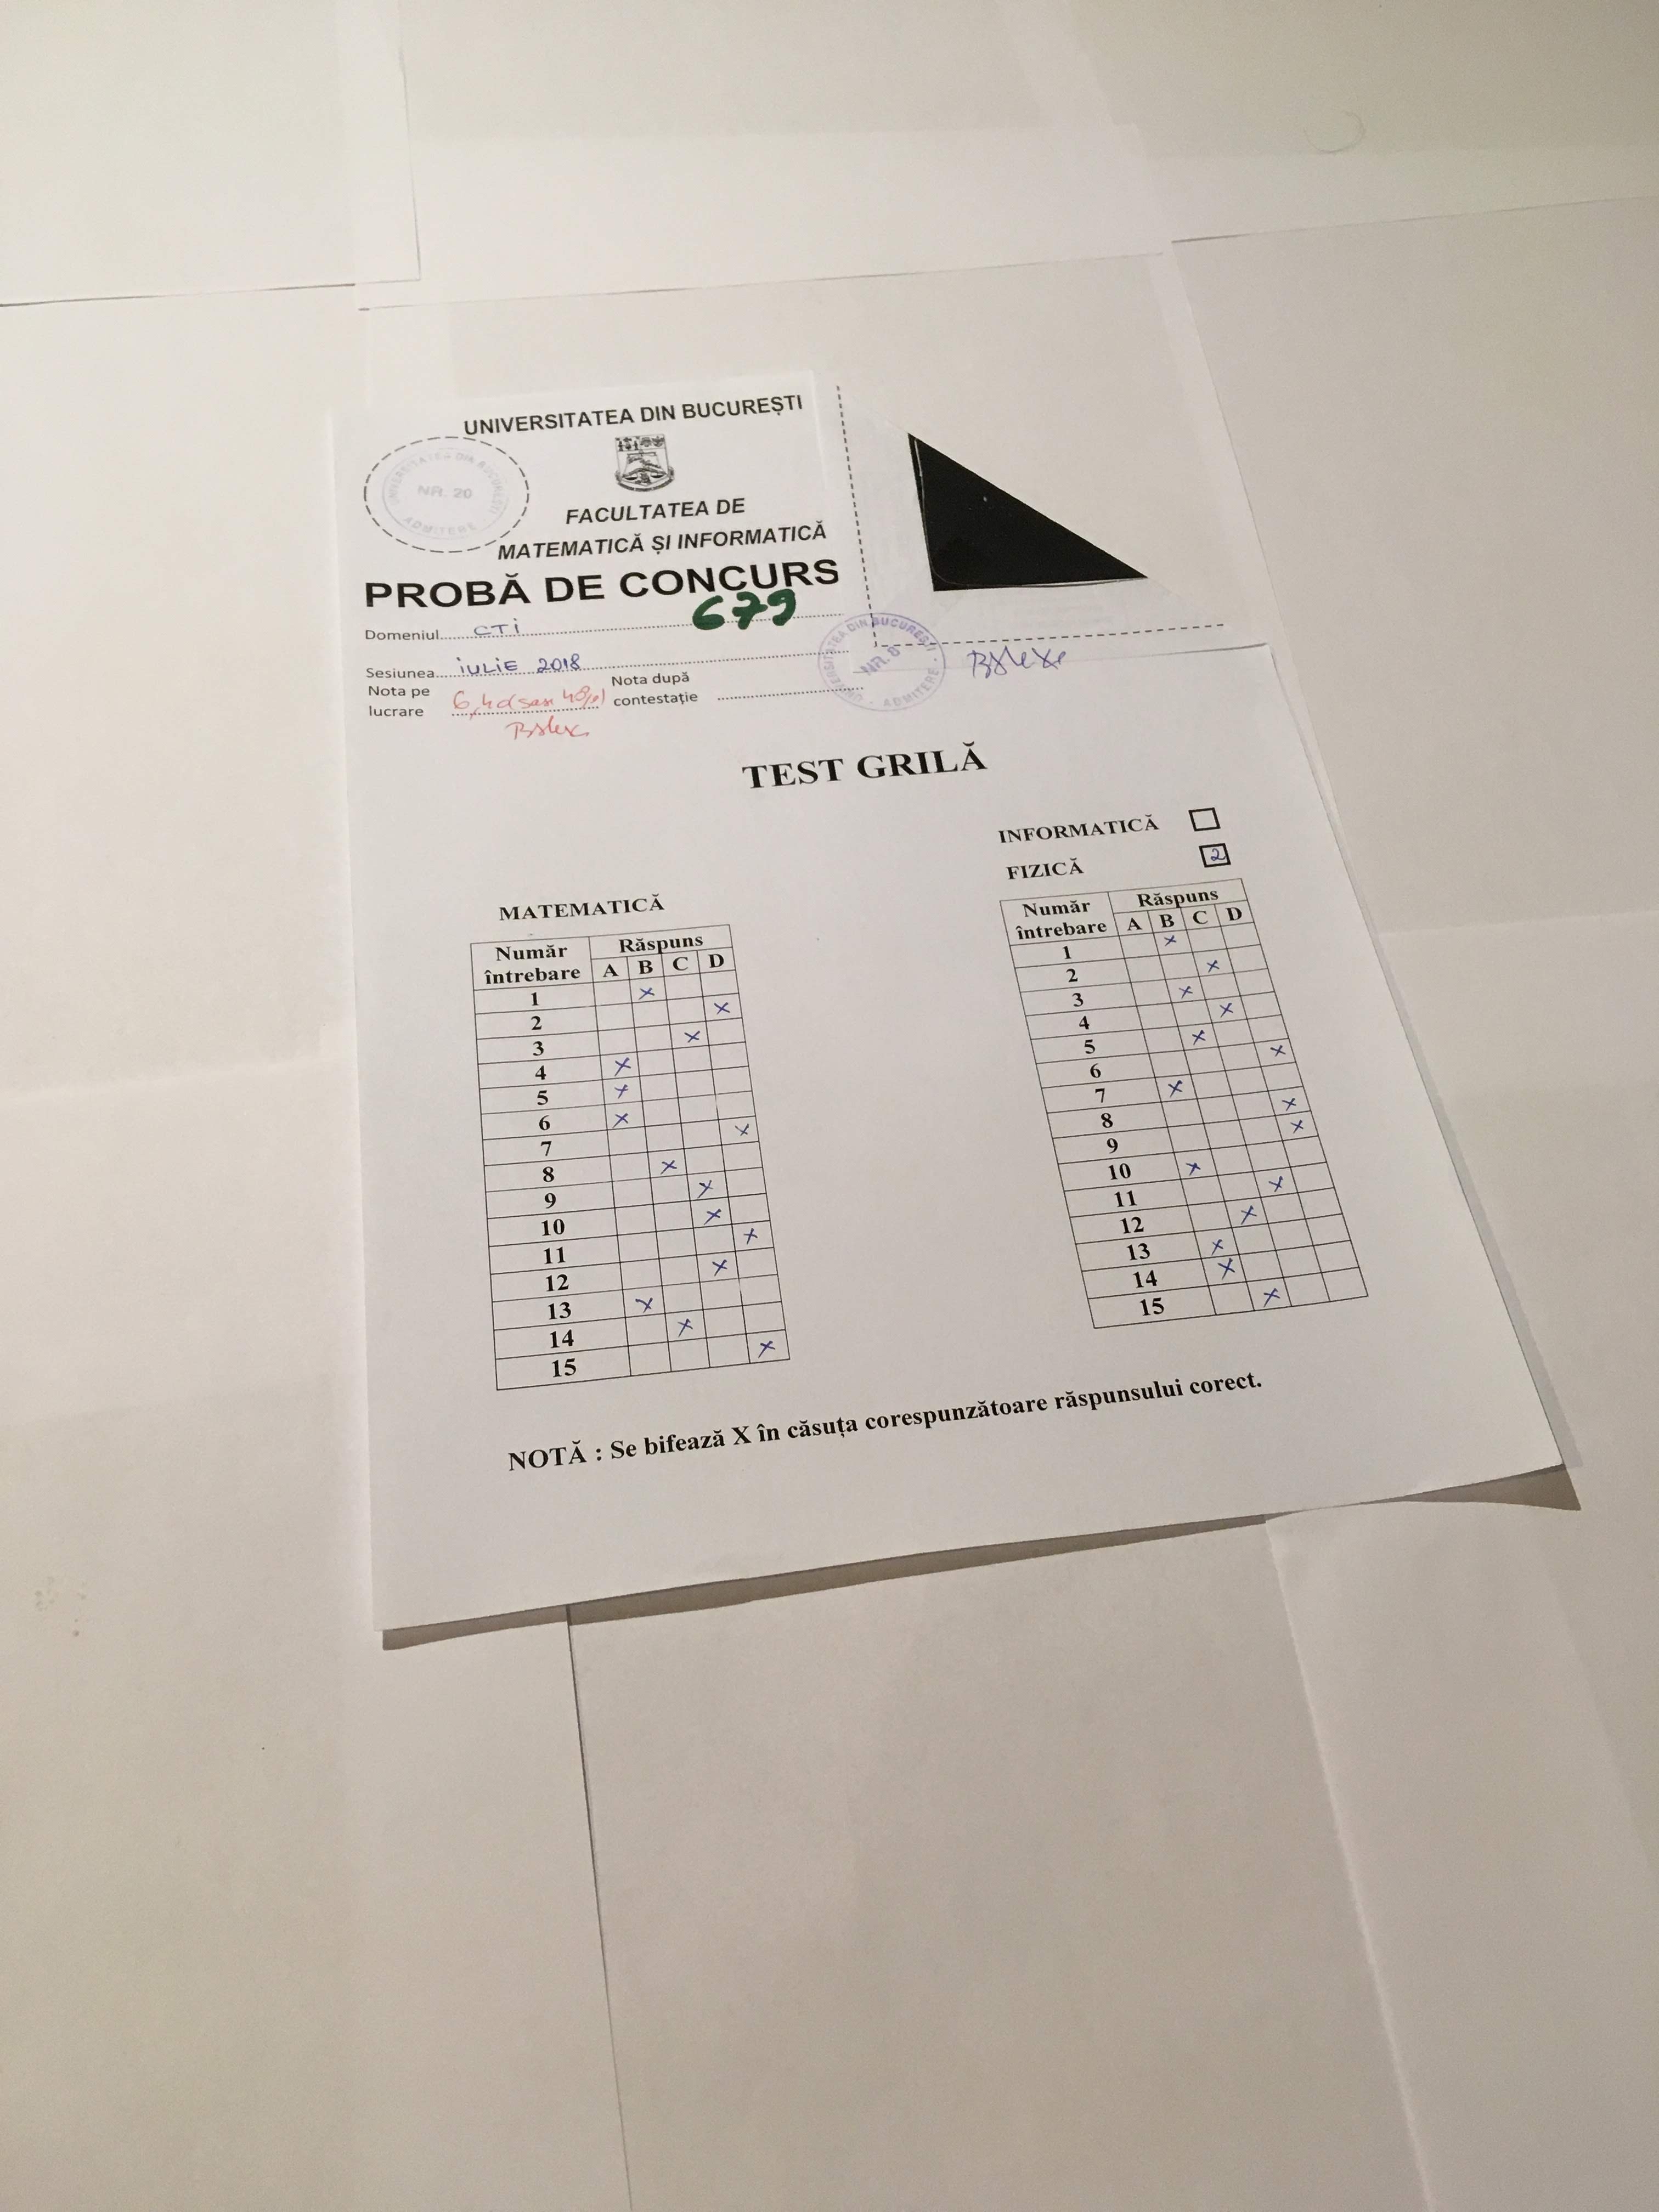 UNIVERSITATEA DIN BUCUREȘTI
UNIVERSITATEA DIN BUCUREȘTI
NR. 20
ADMITERE
FACULTATEA DE
MATEMATICĂ ȘI INFORMATICĂ
PROBĂ DE CONCURS
679
Domeniul CTi
Sesiunea iULiE 2018
Nota pe lucrare 6,40
Nota după contestație
UNIVERSITATEA DIN BUCUREȘTI
NR. 8
ADMITERE
TEST GRILĂ
INFORMATICĂ
FIZICĂ 2
MATEMATICĂ
Număr întrebare Răspuns
A B C D
1 X
2 X
3 X
4 X
5 X
6 X
7 X
8 X
9 X
10 X
11 X
12 X
13 X
14 X
15 X
Număr întrebare Răspuns
A B C D
1 X
2 X
3 X
4 X
5 X
6 X
7 X
8 X
9 X
10 X
11 X
12 X
13 X
14 X
15 X
NOTĂ : Se bifează X în căsuța corespunzătoare răspunsului corect.